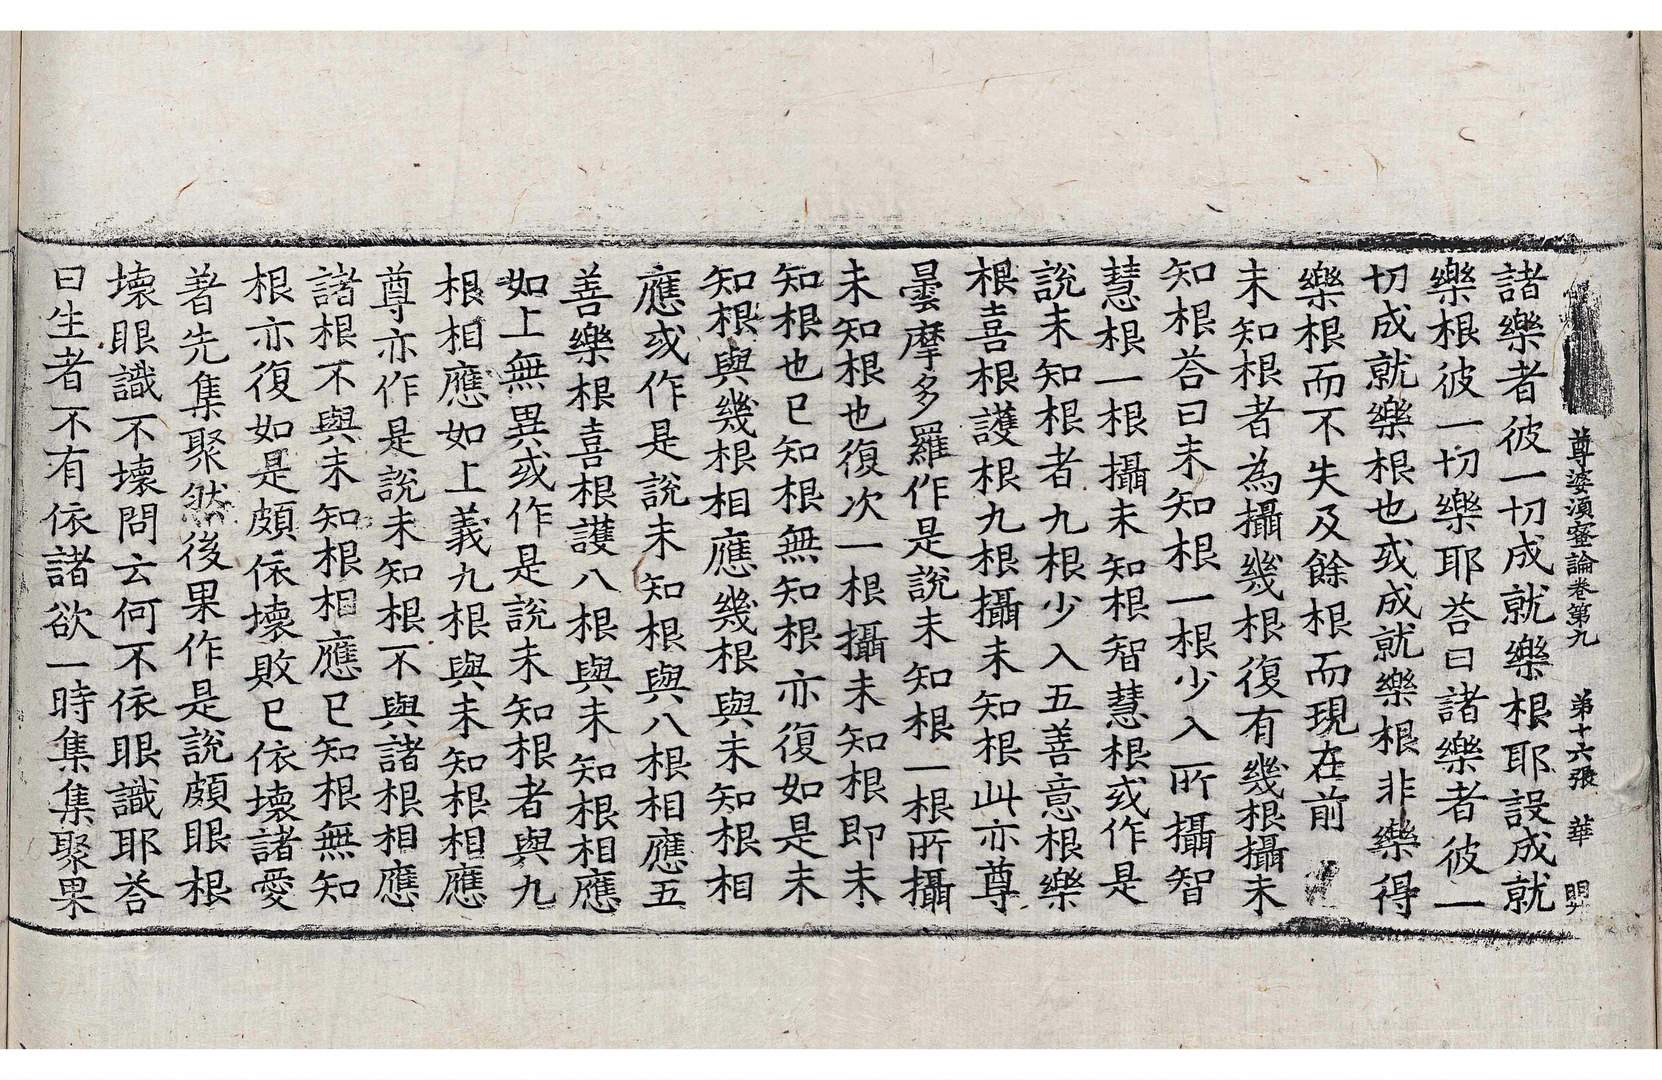 尊婆須蜜論卷第九　第十六張　華　明
諸樂者彼一切成就樂根耶設成就
樂根彼一切樂耶荅曰諸樂者彼一
切成就樂根也或成就樂根非樂得
樂根而不失及餘根而現在前
未知根者為攝幾根復有幾根攝未
知根荅曰未知根一根少入所攝智
慧根一根攝未知根智慧根或作是
說未知根者九根少入五善意根樂
根喜根護根九根攝未知根此亦尊
曇摩多羅作是說未知根一根所攝
未知根也復次一根攝未知根即未
知根也已知根無知根亦復如是未
知根與幾根相應幾根與未知根相
應或作是說未知根與八根相應五
善樂根喜根護八根與未知根相應
如上無異或作是說未知根者與九
根相應如上義九根與未知根相應
尊亦作是說未知根不與諸根相應
諸根不與未知根相應已知根無知
根亦復如是頗依壞敗已依壞諸愛
著先集聚然後果作是說頗眼根
壞眼識不壞問云何不依眼識耶荅
曰生者不有依諸欲一時集集聚果